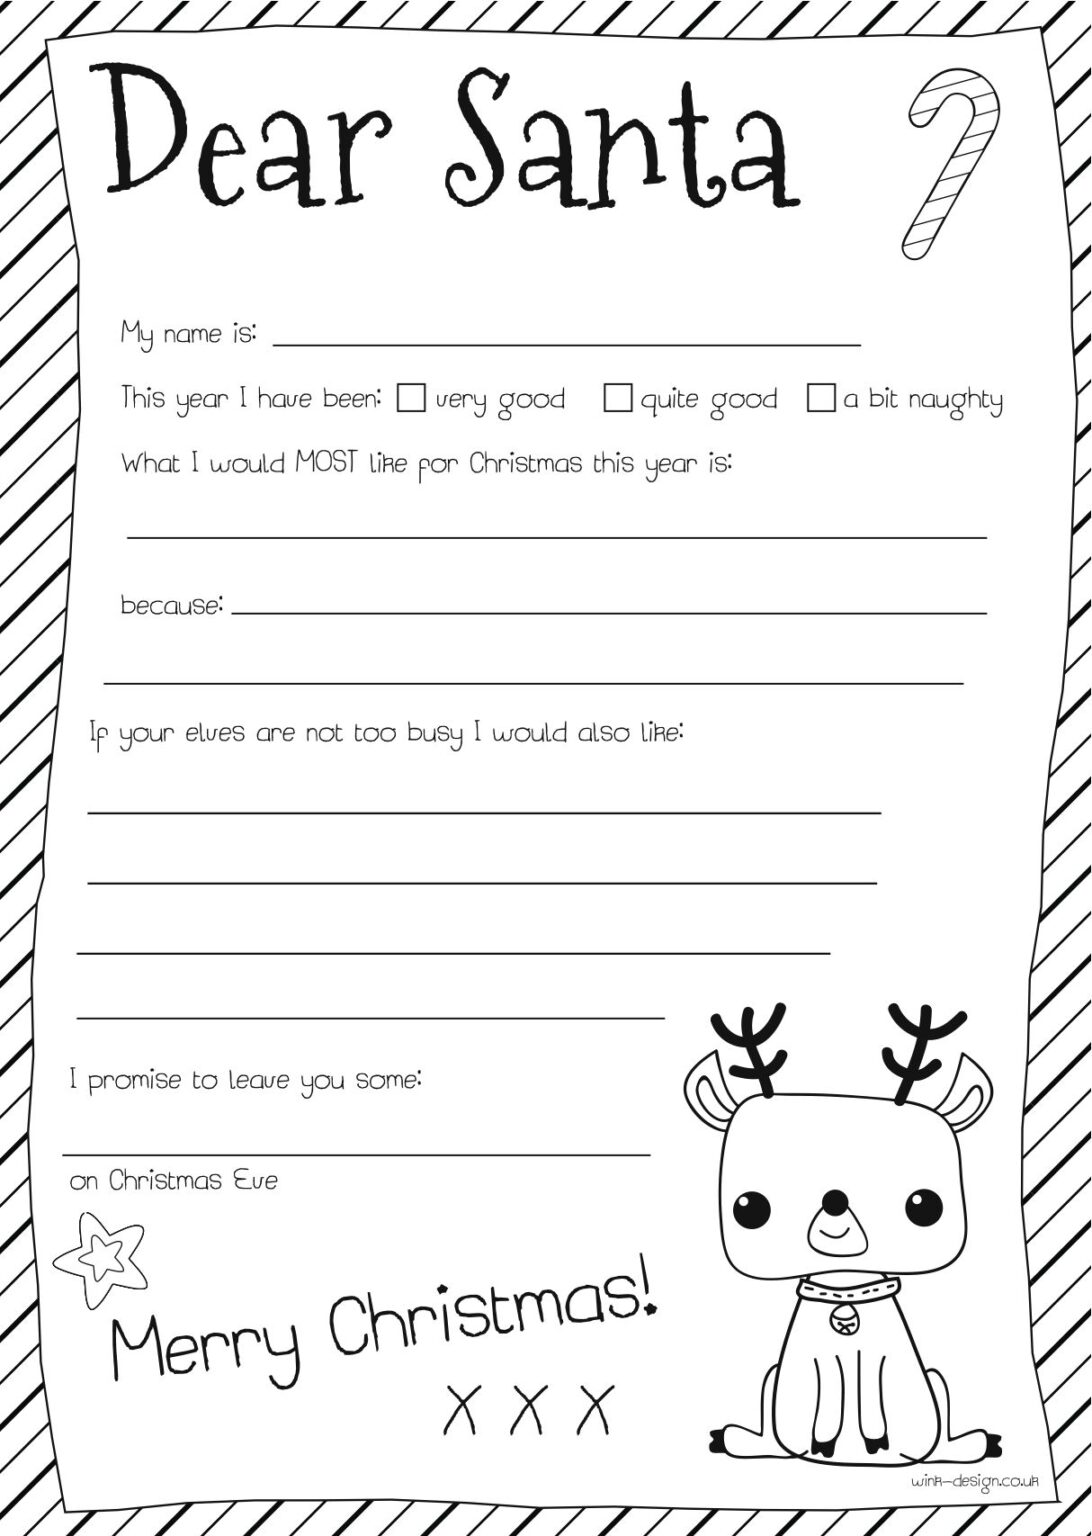 Dear Santa
My name is:
This year I have been: very good quite good a bit naughty
What I would MOST like for Christmas this year is:
because:
If your elves are not too busy I would also like:
I promise to leave you some:
on Christmas Eve
Merry Christmas!
X X X
wink-design.co.uk